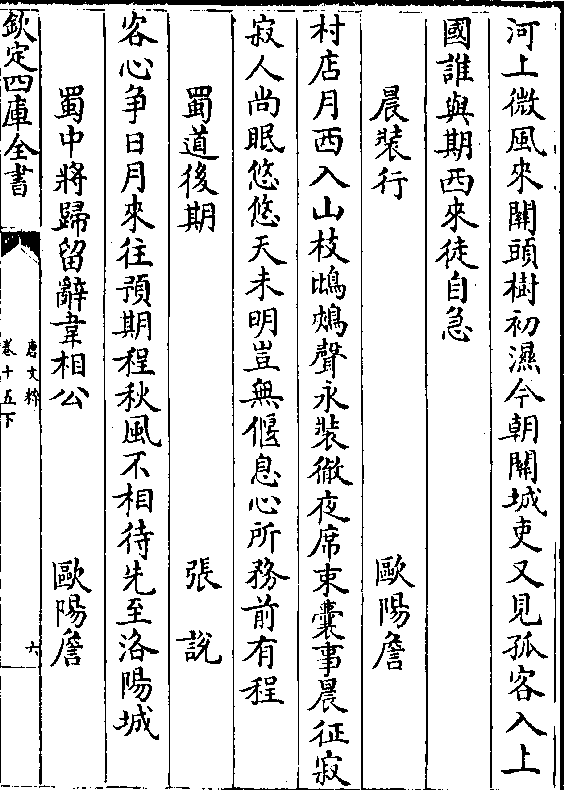 河上微風來關頭樹初濕今朝關城吏又見孤客入上
國誰與期西來徒自急
晨裝行 歐陽詹
村店月西入山枝鴡鴂聲永裝徹夜席束囊事晨征寂
寂人尚眠悠悠天未明豈無偃息心所務前有程
蜀道後期 張說
客心争日月來往預期程秋風不相待先至洛陽城
蜀中將歸留辭韋相公 歐陽詹
欽定四庫全書
唐文粹
卷十五下
六